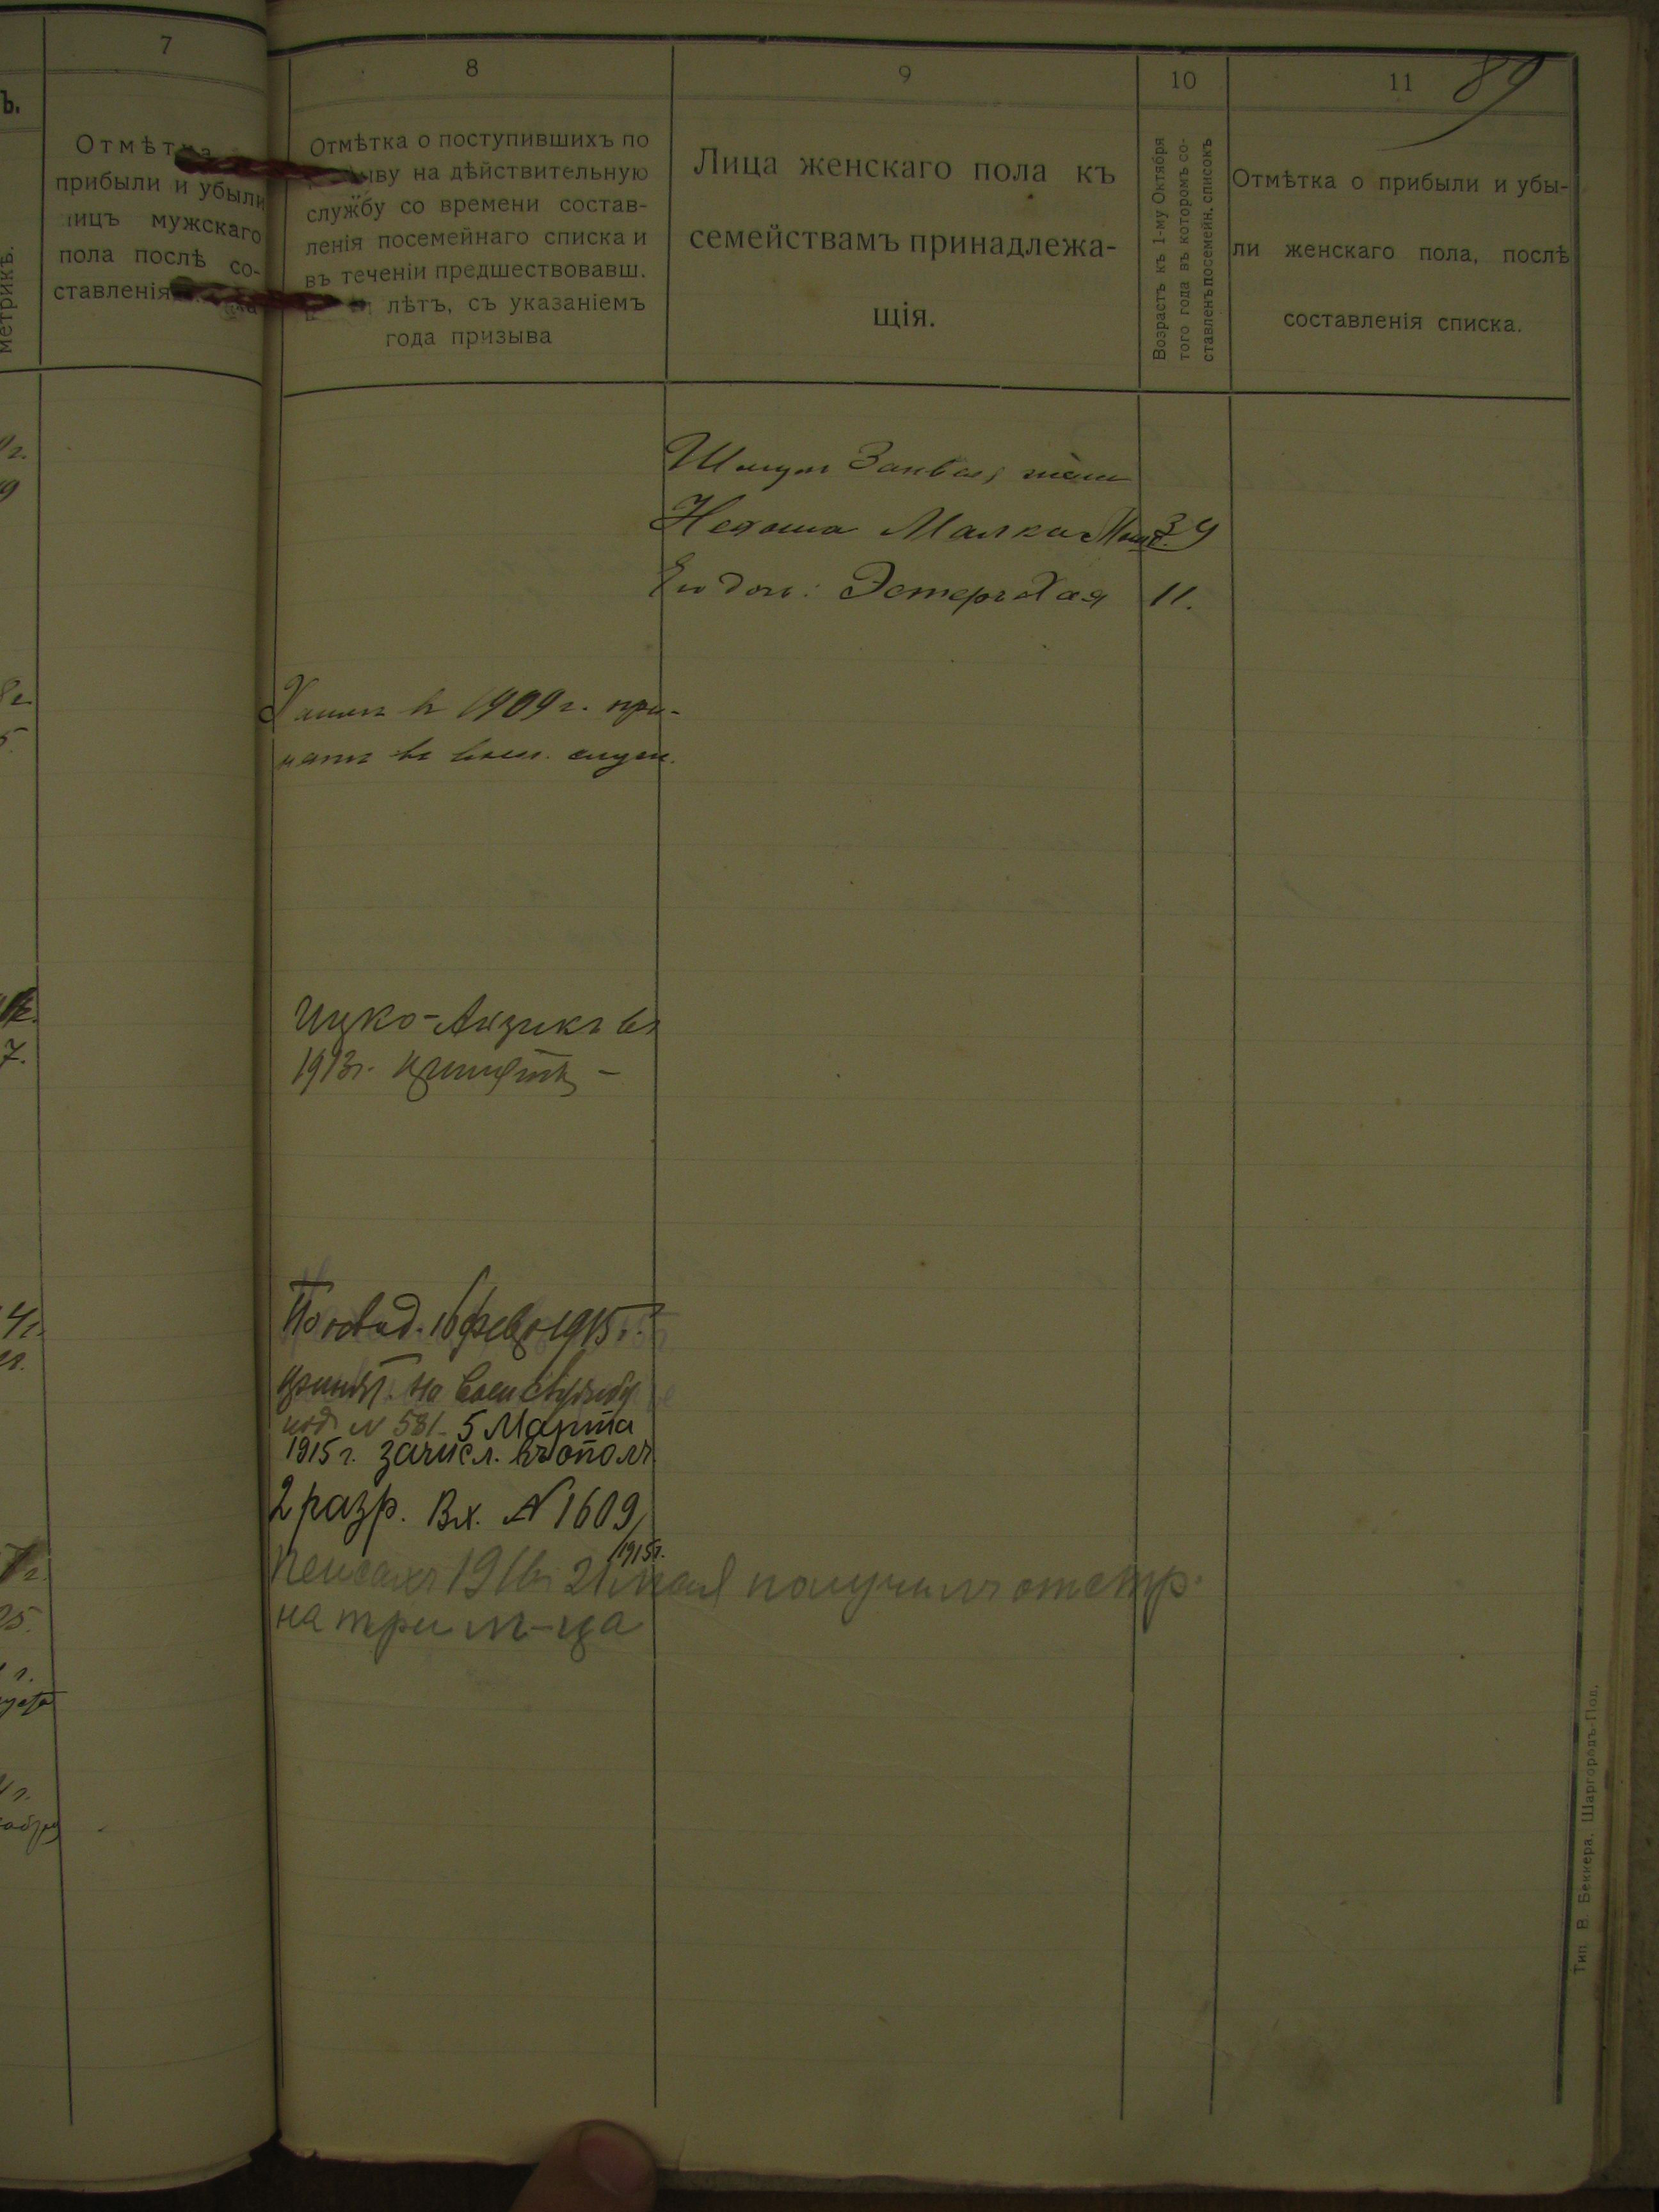 7
8
9
10
11
89
ъ.
метрикъ.
Отмѣтка
прибыли и убыли
лицъ мужскаго
пола послѣ со-
ставленія
Отмѣтка о поступившихъ по
на дѣйствительную
службу со времени состав-
ленія посемейнаго списка и
въ теченіи предшествовавш.
лѣтъ, съ указаніемъ
года призыва
Лица женскаго пола къ
семействамъ принадлежа-
щія.
Возрастъ къ 1-му Октября
того года въ которомъ со-
ставленъ посемейн. списокъ
Отмѣтка о прибыли и убы-
ли женскаго пола, послѣ
составленія списка.
Малка 39
дочь: Эстеръ Хая 11.
въ 1909 г. при-
нятъ въ воен. служ.
Ицко-Айзикъ въ
1913 г. принятъ -
По освид. 16 февр 1915 г.
принят. на воен службу
под N 581. 5 Марта
1915 г. зачисл. въ ополч
2 разр. Вх. N 1609/
1915 г.
Пейсахъ 1916 г. 21 мая получилъ отстр.
на три м-ца
4 г.
7.
25.
Тип. В. Беккера. Шаргородъ-Под.